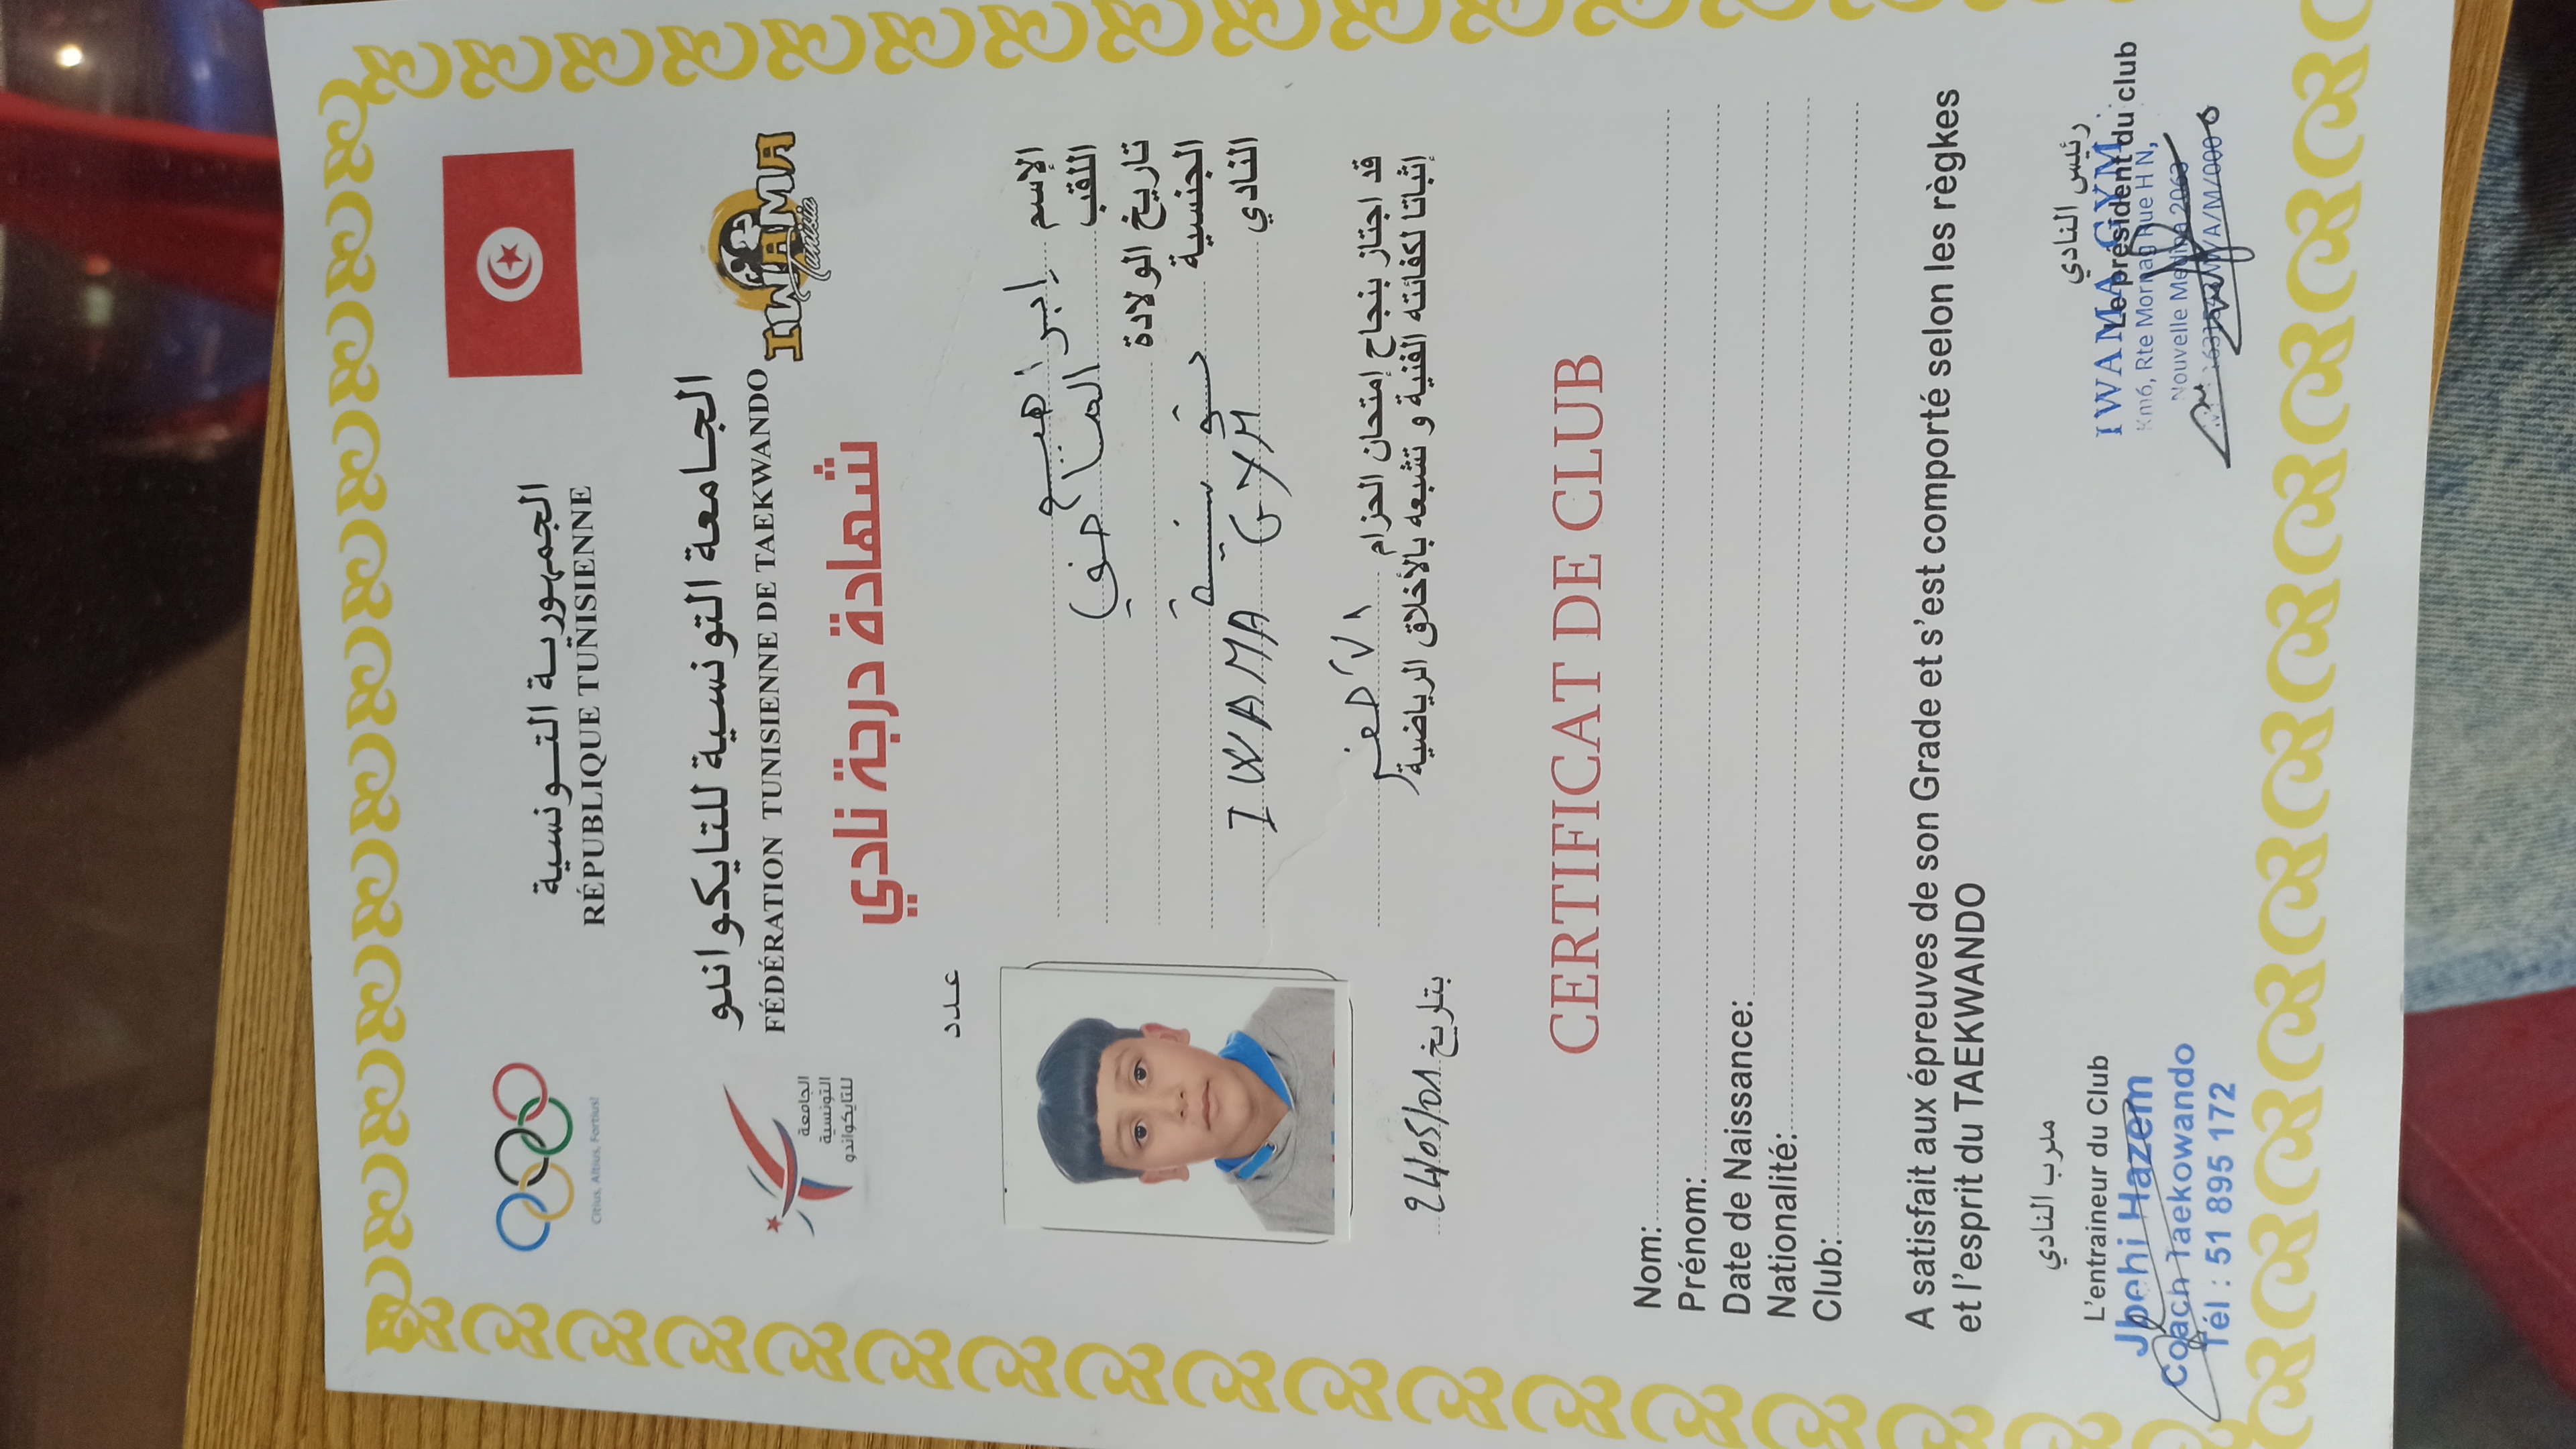 الجمهورية التونسية
RÉPUBLIQUE TUNISIENNE
Citius, Altius, Fortius!
الجامعة التونسية للتايكواندو
FÉDÉRATION TUNISIENNE DE TAEKWANDO
الجامعة
التونسية
للتايكواندو
IWAMA
Tunisie
شهادة درجة نادي
عدد
الإسم ابراهيم
اللقب
تاريخ الولادة
الجنسية تونسية
النادي IWAMA GYM
قد اجتاز بنجاح إمتحان الحزام
إثباتا لكفائته الفنية و تشبعه بالأخلاق الرياضية
بتاريخ
CERTIFICAT DE CLUB
Nom:
Prénom:
Date de Naissance:
Nationalité:
Club:
A satisfait aux épreuves de son Grade et s'est comporté selon les règkes
et l'esprit du TAEKWANDO
مدرب النادي
L'entraineur du Club
Jbehi Hazem
Coach Taekowando
Tél : 51 895 172
رئيس النادي
Le président du club
IWAMA GYM
Km6, Rte Mornag Rue H N,
Nouvelle Medina 2063